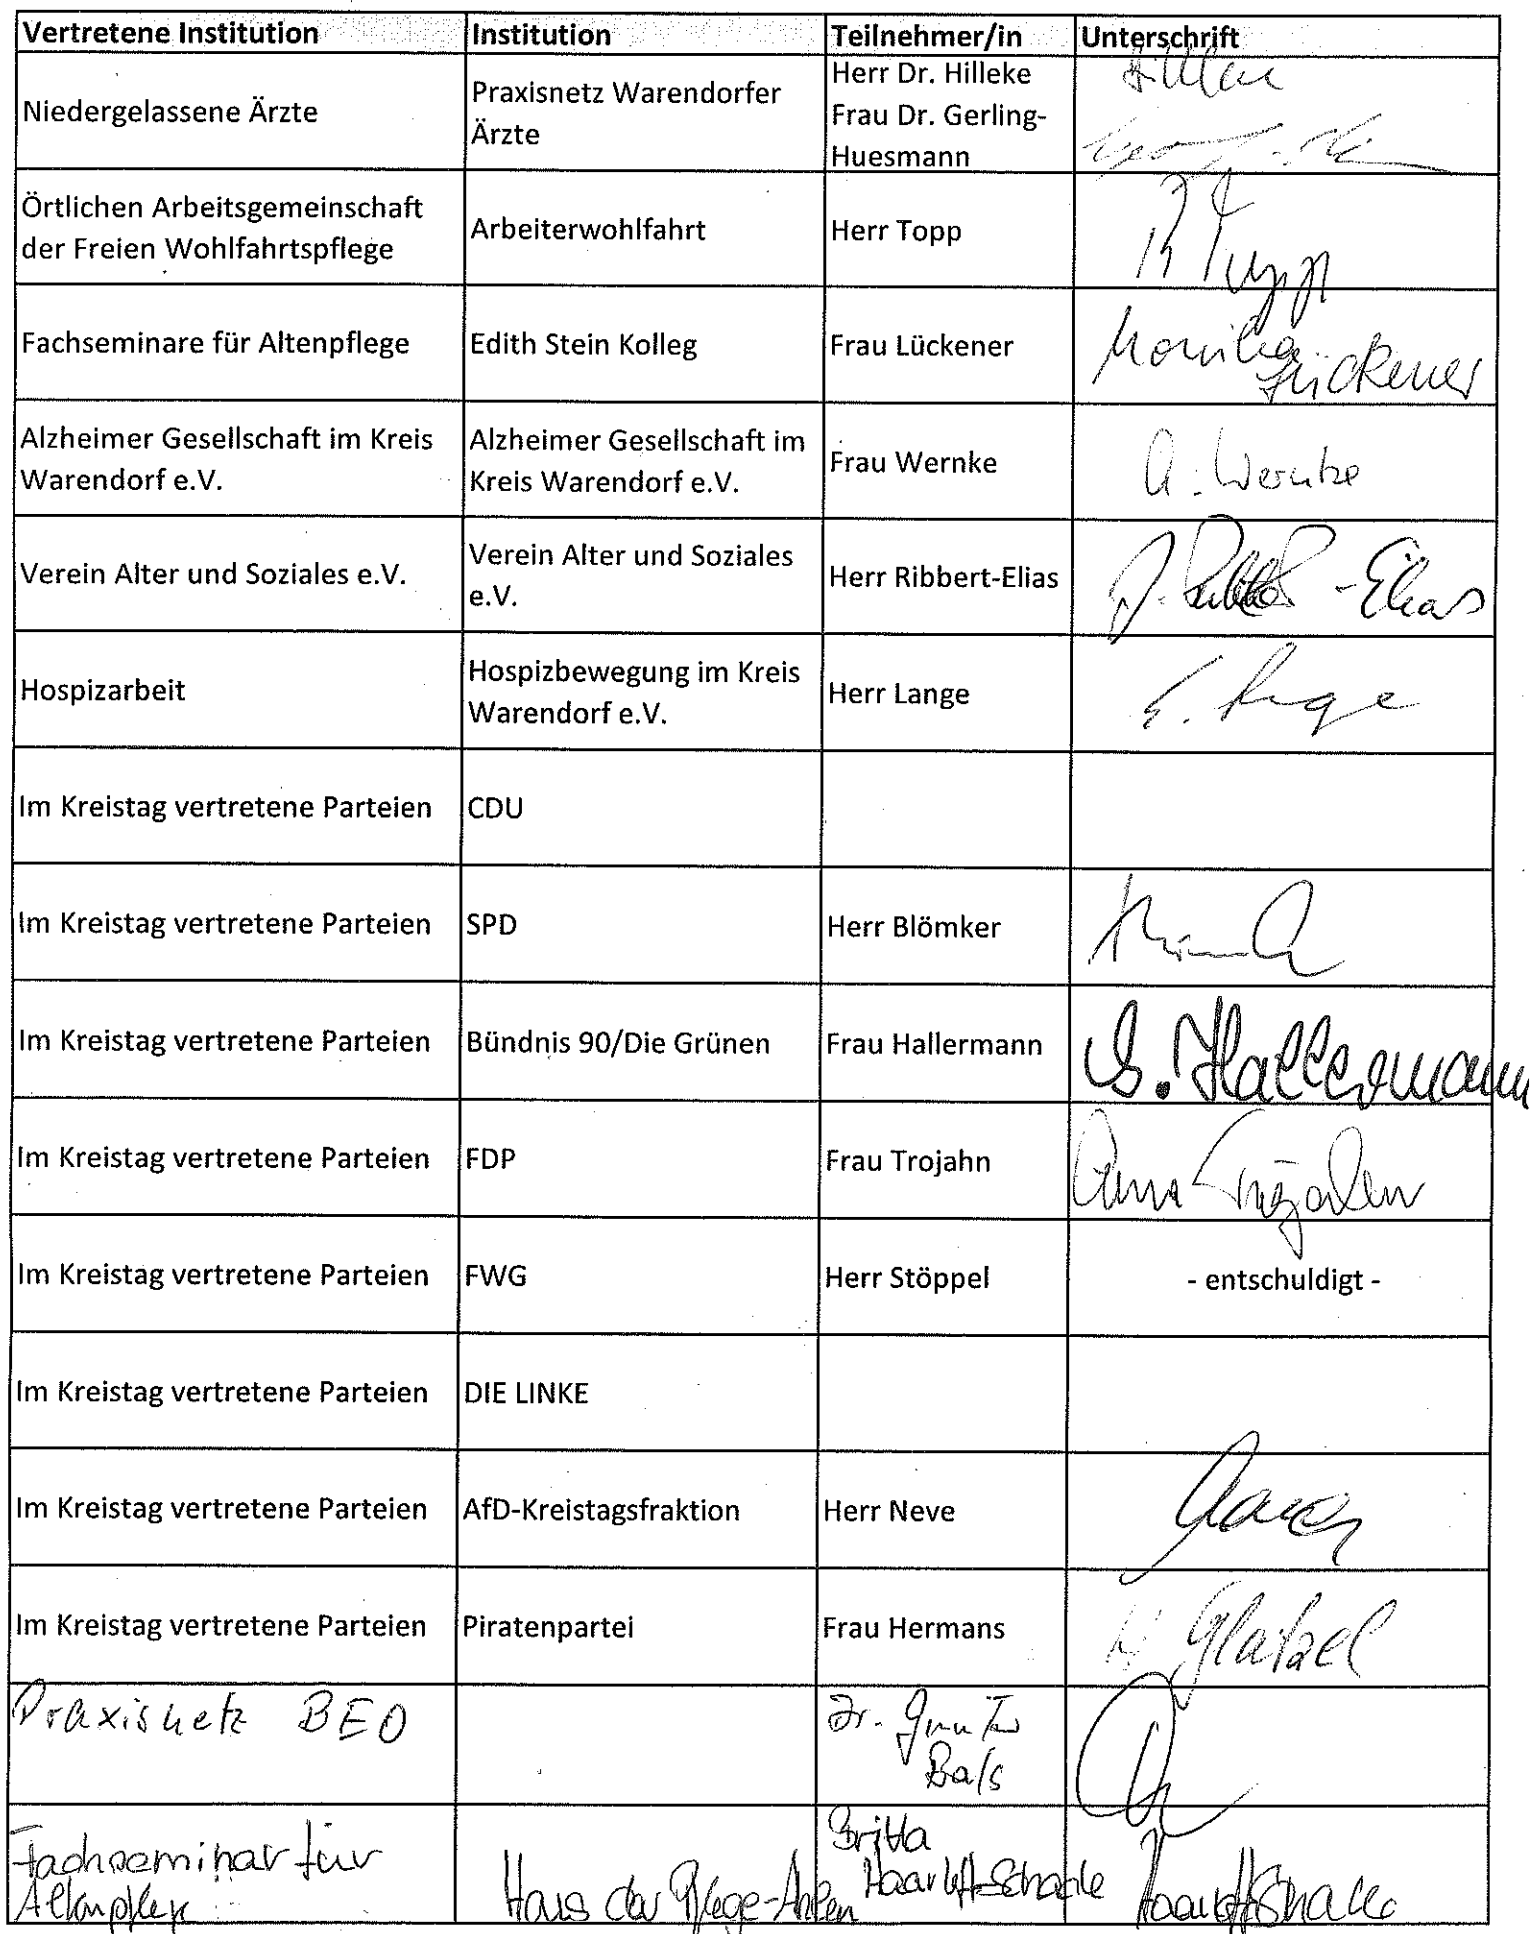 Vertretene Institution Institution Teilnehmer/in Unterschrift
Niedergelassene Ärzte
Praxisnetz Warendorfer
Ärzte
Herr Dr. Hilleke
Frau Dr. Gerling-
Huesmann
Örtlichen Arbeitsgemeinschaft
der Freien Wohlfahrtspflege
Arbeiterwohlfahrt
Herr Topp
Fachseminare für Altenpflege
Edith Stein Kolleg
Frau Lückener
Monika
Lückener
Alzheimer Gesellschaft im Kreis
Warendorf e.V.
Alzheimer Gesellschaft im
Kreis Warendorf e.V.
Frau Wernke
A. Wernke
Verein Alter und Soziales e.V.
Verein Alter und Soziales
e.V.
Herr Ribbert-Elias
-Elias
Hospizarbeit
Hospizbewegung im Kreis
Warendorf e.V.
Herr Lange
Im Kreistag vertretene Parteien
CDU
Im Kreistag vertretene Parteien
SPD
Herr Blömker
Im Kreistag vertretene Parteien
Bündnis 90/Die Grünen
Frau Hallermann
Hallermann
Im Kreistag vertretene Parteien
FDP
Frau Trojahn
Trojahn
Im Kreistag vertretene Parteien
FWG
Herr Stöppel
- entschuldigt -
Im Kreistag vertretene Parteien
DIE LINKE
Im Kreistag vertretene Parteien
AfD-Kreistagsfraktion
Herr Neve
Im Kreistag vertretene Parteien
Piratenpartei
Frau Hermans
Glatzel
Praxisnetz BEO
Dr.
Fachseminar für
Altenpflege
Haus der Pflege-Ahlen
Britta